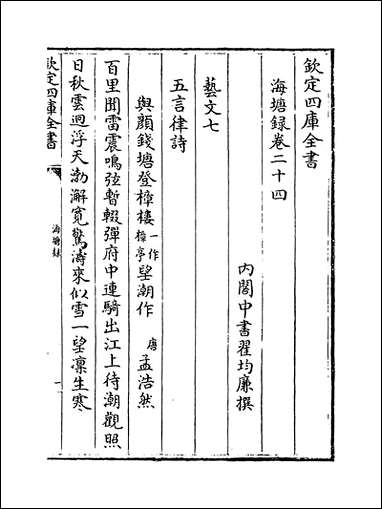 欽定四庫全書
海塘錄卷二十四
內閣中書翟均廉撰
藝文七
五言律詩
與顔錢塘登樟樓一作樟亭望潮作 唐孟浩然
百里聞雷震鳴弦暫輟彈府中連騎出江上待潮觀照
日秋雲迥浮天渤澥寛驚濤來似雪一望凛生寒
欽定四庫全書
海塘錄
一